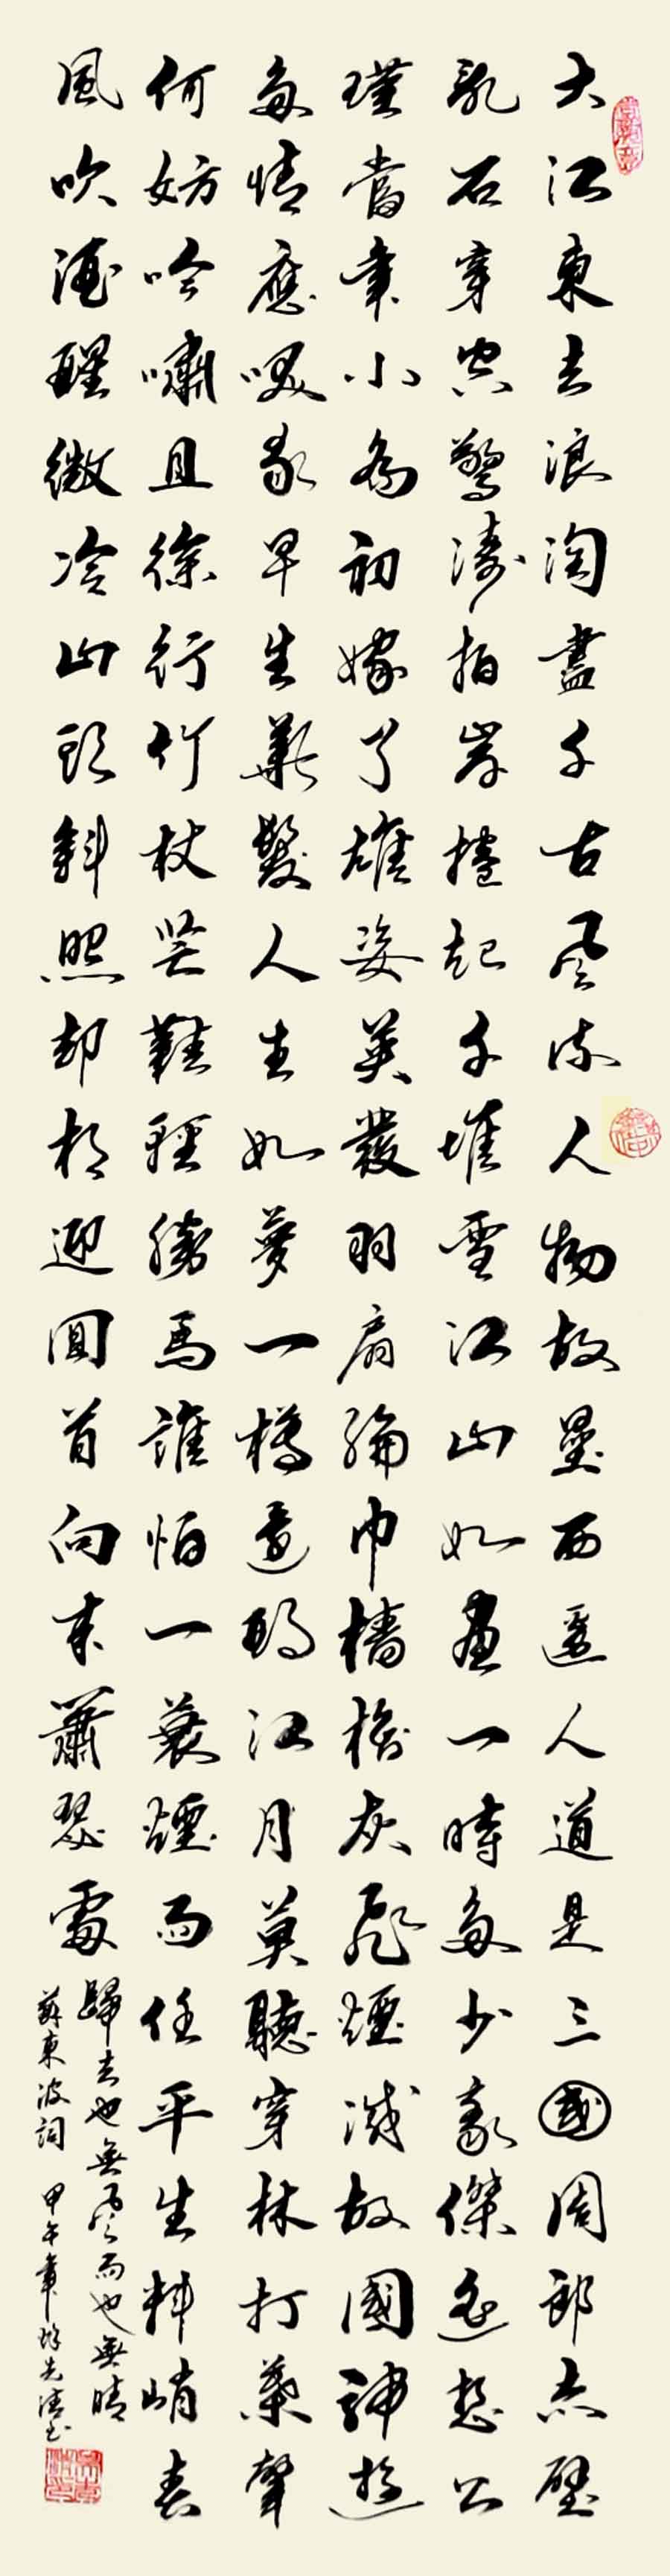 大江東去浪淘盡千古風流人物故壘西邊人道是三國周郎赤壁
亂石穿空驚濤拍岸捲起千堆雪江山如畫一時多少豪傑遙想公
瑾當年小喬初嫁了雄姿英發羽扇綸巾檣櫓灰飛煙滅故國神遊
多情應咲我早生華髮人生如夢一樽還酹江月莫聽穿林打葉聲
何妨吟嘯且徐行竹杖芒鞋輕勝馬誰怕一蓑煙雨任平生料峭春
風吹酒醒微冷山頭斜照却相迎回首向來蕭瑟處
歸去也無風雨也無晴
蘇東坡詞 甲午年